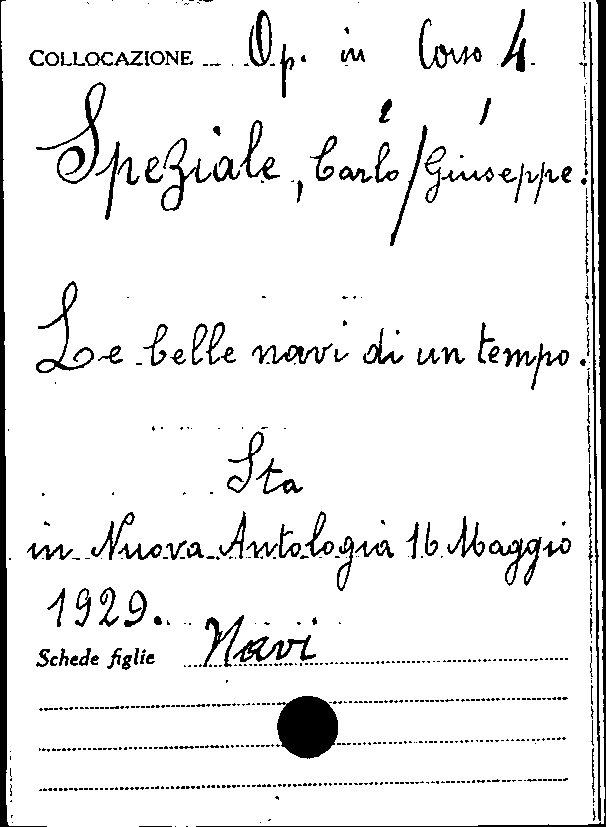 COLLOCAZIONE Op. in Corso 4
Speziale, Carlo/Giuseppe.
Le belle navi di un tempo.
Sta
in Nuova Antologia 16 Maggio
1929.
Schede figlie Navi